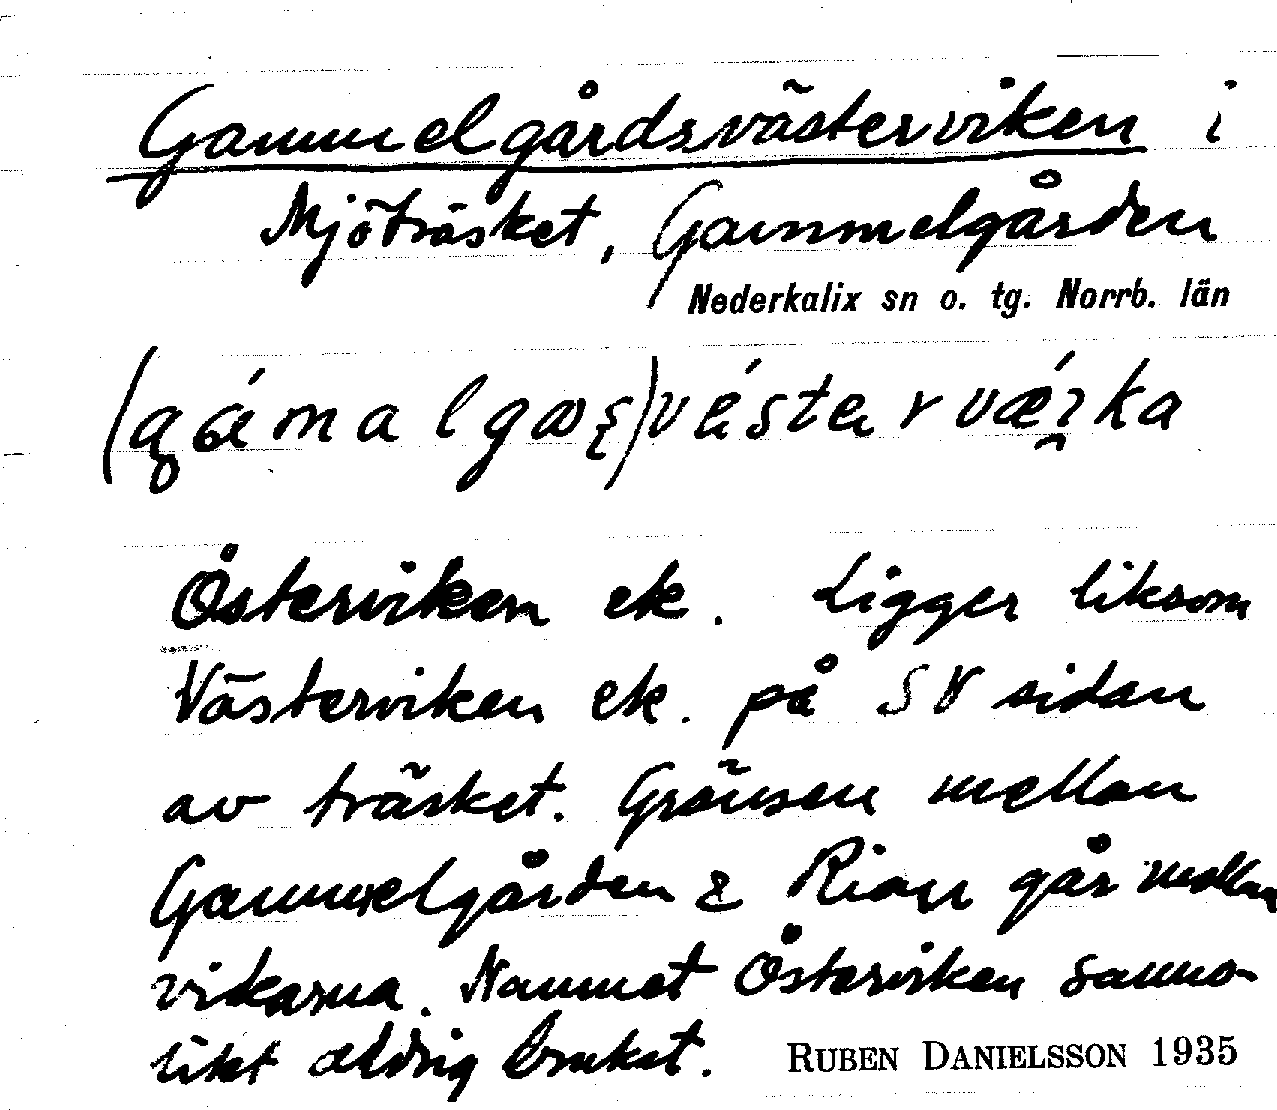 Gammelgårdsvästerviken i
Mjöträsket, Gammelgården
Nederkalix sn o. tg. Norrb. län
Österviken ek. Ligger liksom
Västerviken ek. på SV sidan
av träsket. Gränsen mellan
Gammelgården & Rian går mellan
vikarna. Namnet Österviken sanno-
likt aldrig brukat.
RUBEN DANIELSSON 1935